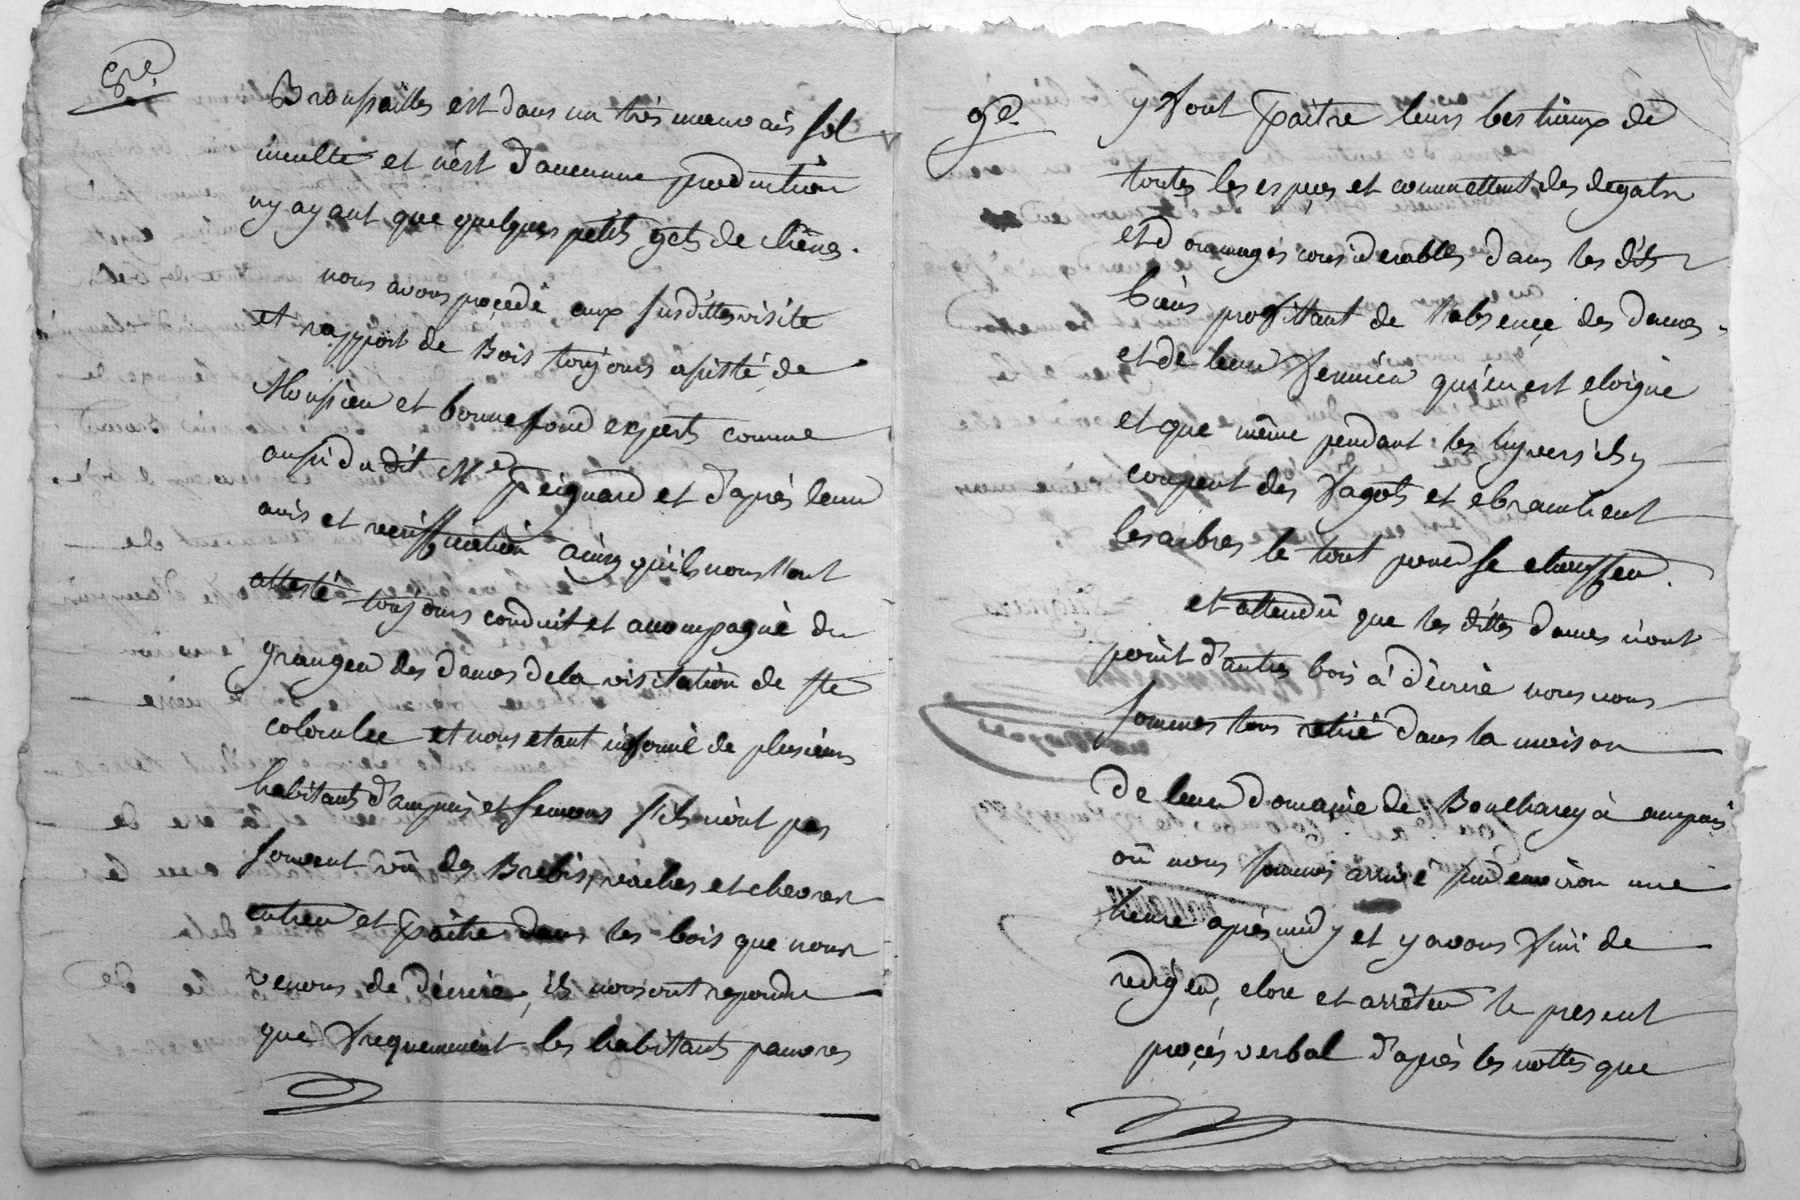 8re.
Broussailles est dans un très mauvais sol
inculte et n'est d'aucunne production
ny ayant que quelques petits gets de chênes.
nous avons procedé aux susdittes visite
et rapport de Bois toujours assisté de
Monsieur et bonnefond experts comme
aussi du dit Me Peignard et d'après leur
avis et veriffication ainsy qu'ils nous l'ont
attesté toujours conduit et accompagné du
granger des dames de la visitation de Ste
colombe et nous etant informé de plusieurs
habitants d'ampuis et semons s'ils n'ont pas
souvent vû des Brebis, vaches et chevres
entrer et paitre dans les bois que nous
venons de décrire, ils nous ont repondu
que frequemment les habitants pauvres
9e.
y font paitre leurs bestiaux de
toutes les espèces et commettent des degats
et dommages considerables dans les dits
bois profittant de l'absençe des dames
et de leur fermier qui en est eloigné
et que même pendant les hyvers ils y
coupent des fagots et ebranchent
les arbres le tout pour se chauffer.
et attendû que les dittes dames n'ont
point d'autres bois à décrire nous nous
sommes tous retiré dans la maison
de leur domaine de Boucharey à ampuis
où nous sommes arrivé sur environ une
heure après midy et y avons fini de
rediger, clore et arrêter le present
procés verbal d'après les nottes que